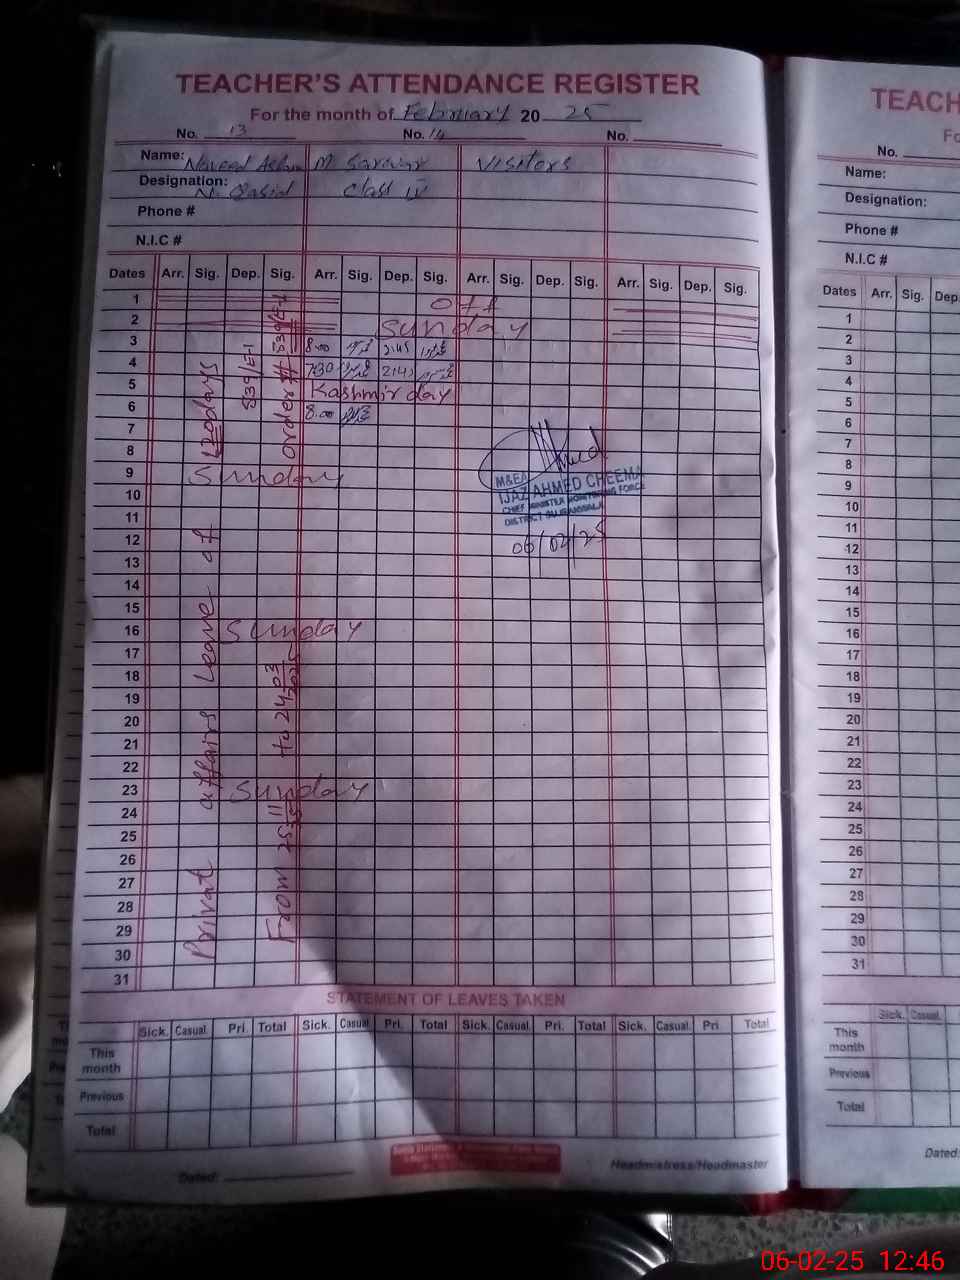 TEACHER'S ATTENDANCE REGISTER
For the month of February 20 25
No. 13 No. 14 No.
Name: Naveed M Sarwar Visitors
Designation: N. Qasid Class IV
Phone #
N.I.C #
Dates Arr. Sig. Dep. Sig. Arr. Sig. Dep. Sig. Arr. Sig. Dep. Sig. Arr. Sig. Dep. Sig.
1 Off
2 Sunday
3 8.00 2:45
4 7:30 2:45
5 Kashmir day
6 8.00
7
8
9 Sunday
10
11
12
13
14
15
16 Sunday
17
18
19
20
21
22
23 Sunday
24
25
26
27
28
29
30
31
Private affairs Leave of 120 days
From 25 11 to 24 03 2025 order # 839/E-1
839/E-1
M&EA
IJAZ AHMED CHEEMA
CHIEF MINISTER MONITORING FORCE
DISTRICT
06/02/25
STATEMENT OF LEAVES TAKEN
Sick. Casual. Pri. Total Sick. Casual. Pri. Total Sick. Casual. Pri. Total Sick. Casual. Pri. Total
This month
Previous
Total
Dated: Headmistress/Headmaster
TEACH
No.
Name:
Designation:
Phone #
N.I.C #
Dates Arr. Sig. Dep
1
2
3
4
5
6
7
8
9
10
11
12
13
14
15
16
17
18
19
20
21
22
23
24
25
26
27
28
29
30
31
Sick. Casual.
This month
Previous
Total
Dated:
06-02-25 12:46